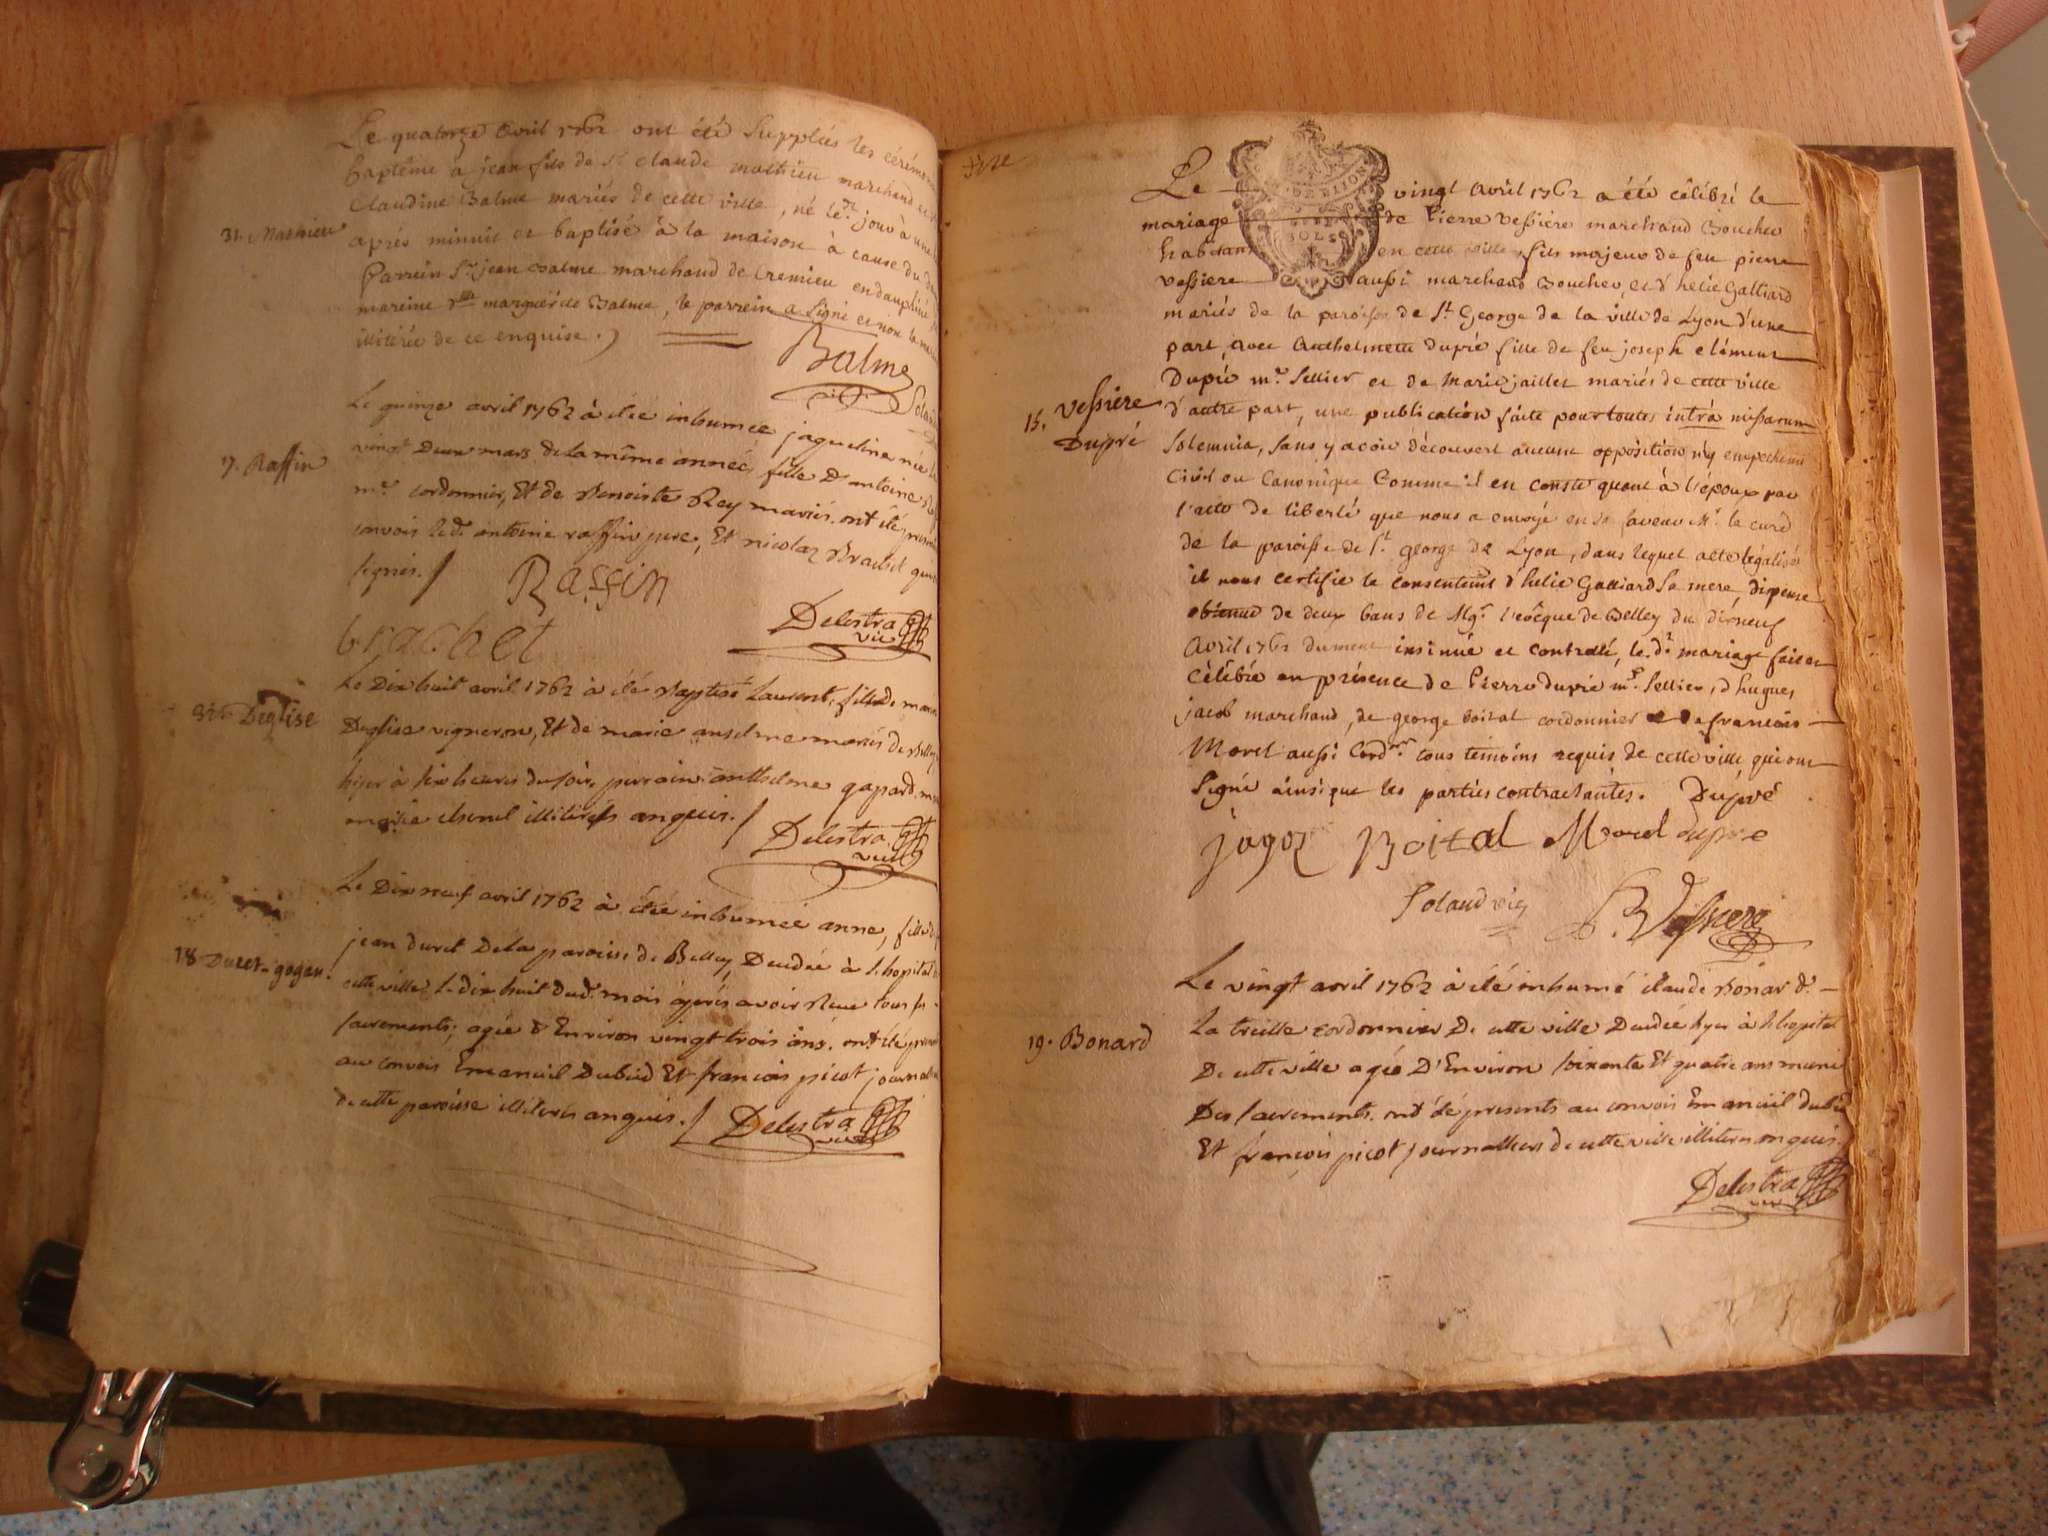 Le quatorze avril 1762 ont été Supplées les cérémo
baptême à jean fils de Sr claude mathieu marchand et
Claudine Balme mariés de cette ville, né le dt jour à une
31. Mathieu
après minuit et baptisé à la maison à cause du
Parrein Sr jean Balme marchand de Cremieu en dauphiné
mareine marguérite Balme, le parrein a Signé et non la
illitérée de ce enquise.
Balme
Le quinze avril 1762 à été inhumée jaqueline née le
17. Raffin
vingt Deux mars de la même année, fille D'antoine
me cordonnier, Et de Benoiste Rey mariés. ont été
convois led. antoine raffin pere, Et nicolas Brachet qui
signés.
Raffin
Delestra
vic
brachet
Le Dix huit avril 1762 à été Baptisé Laurent, fils de
32. Deglise
Deglise vigneron, Et de marie anselme mariés de Belley
hyer à six heures du soir, parrain anthelme gapard
marie chenel illitirés anquis.
Delestra
vic
Le Dix neuf avril 1762 à été inhumée anne, fille
jean duret De la paroisse de Belley, Decedée à L'hopital
18 Duret-gogan.
cette ville, le dix huit dud. mois après avoir Receu tous les
sacrements, agée D'Environ vingt trois ans. ont été
au convois Emanuil Dubied Et francois picot
de cette paroisse illiterés anquis.
Delestra
vic
Le vingt avril 1762 a été célébré le
mariage de Pierre Vessiére marchand Boucher
habitant en cette ville, fils majeur de feu pierre
Vessiere aussi marchand Boucher, et d'helie Galliard
mariés de la paroisse de St George de la ville de Lyon d'une
part, avec Anthelmette dupré fille de feu joseph clément
Dupré me. Sellier et de Marie jaillet mariés de cette ville
15. Vessiere
Dupré
d'autre part, une publication faite pour toutes intrà missarum
Solemnia, sans y avoir découvert aucune opposition n'y empechement
Civil ou Canonique Comme il en conste quant à l'epoux par
l'acte de liberté que nous a envoyé en sa faveur Mr. le curé
de la paroisse de St. george de Lyon, dans lequel acte légalisé
il nous certifie le consentemt d'helie Galliard Sa mere, dispense
obtenue de deux bans de Mgr. l'evêque de Belley du dixneuf
Avril 1762 dument insinué et controllé, le dt mariage fait et
célébré en présence de Pierre dupré me. Sellier, d'hugues
jacob marchand, de george boital cordonnier et de francois
Morel aussi Cordr. tous témoins requis de cette ville qui ont
Signé ainsi que les parties contractantes. Dupré
Boital Morel dupre
Solaud vic
Le vingt avril 1762 à été inhumé claude Bonard
19. Bonard
La treille cordonnier De cette ville Decedée hyer à L'hopital
De cette ville agée D'Environ soixante Et quatre ans muni
Des sacrements. ont été presents au convois Emanuil dubied
Et françois picot journalliers de cette ville illiterés anquis.
Delestra
vic